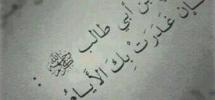 بن أبي طالب
إن غدرت بك الأيام